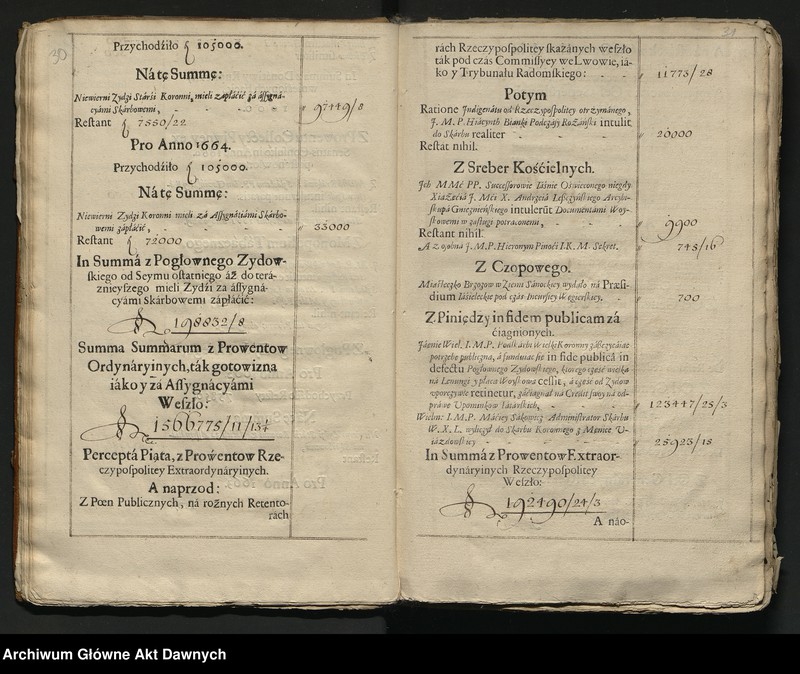 30
Przychodźiło ꝭ 105000.
Ná tę Summę:
Niewierni Zydźi Stárśi Koronni, mieli zápłáćić zá áſſygná-
cyámi Skárbowemi, - - - 97449/8
Reſtant ꝭ 7550/22
Pro Anno 1664.
Przychodźiło ꝭ 105000.
Ná tę Summę:
Niewierni Zydźi Koronni mieli zá Aſſygnátiámi Skárbo-
wemi zápłáćić, - - - 33000
Reſtant ꝭ 72000
In Summá z Pogłownego Zydow-
ſkiego od Seymu oſtátniego áż do terá-
znieyſzego mieli Zydźi za áſſygná-
cyámi Skárbowemi zápłáćić:
198832/8
Summa Summarum z Prowentow
Ordynáryinych, ták gotowizna
iáko y zá Aſſygnácyámi
Weſzło:
1566775/11/134
Perceptá Piąta, z Prowentow Rze-
czypoſpolitey Extraordynáryinych.
A naprzod:
Z Pœn Publicznych, ná rożnych Retento-
rách
31
rách Rzeczypoſpolitey ſkazánych weſzło
ták pod czás Commiſſyey we Lwowie, iá-
ko y Trybunału Radomſkiego: - - 11773/28
Potym
Ratione Indigenátu od Rzeczypoſpolitey otrzymánego,
J. M. P. Hiácynth Bianki Podczáſzy Rożáńſki intulit
do Skárbu realiter - - - 20000
Reſtat nihil.
Z Sreber Kośćielnych.
Ich MMć PP. Succeſſorowie Iáśnie Oświeconego niegdy
Xiążećiá J. Mći X. Andrzeiá Leſzczyńſkiego Arcybi-
ſkupá Gnieznieńſkiego intulerūt Documentámi Woy-
ſkowemi w záſługi potráconemi, - - 9900
Reſtant nihil.
A z oſobná J. M. P. Hieronym Pinoći I. K. M. Sekret. 748/16
Z Czopowego.
Miáſteczko Brzozow w Ziemi Sánockiey wydało ná Præſi-
dium Iáśieleckie pod czás Incurſiey Węgierſkiey. - 700
Z Piniędzy in fidem publicam zá
ćiągnionych.
Jáśnie Wiel. I. M. P. Podſkárbi Wielki Koronny
potrzebę publiczną, á fundując ſię in fide publicâ in
defectu Pogłownego Zydowſkiego, ktorego część wielka
ná Lenungi y płace Woyſkowe ceſſit, á część od Zydow
retinetur, záćiągnął ná Credit ſwoy ná od-
práwę Upominkow Tátárſkich, - - 123447/25/3
Wielm: I. M. P. Máćiey Administrator Skárbu
W. X. L. wyliczył do Skárbu Koronnego z Menice U-
iázdowſkiey - - - 25923/18
In Summá z Prowentow Extraor-
dynáryinych Rzeczypoſpolitey
Weſzło:
192490/24/3
A náo-
Archiwum Główne Akt Dawnych